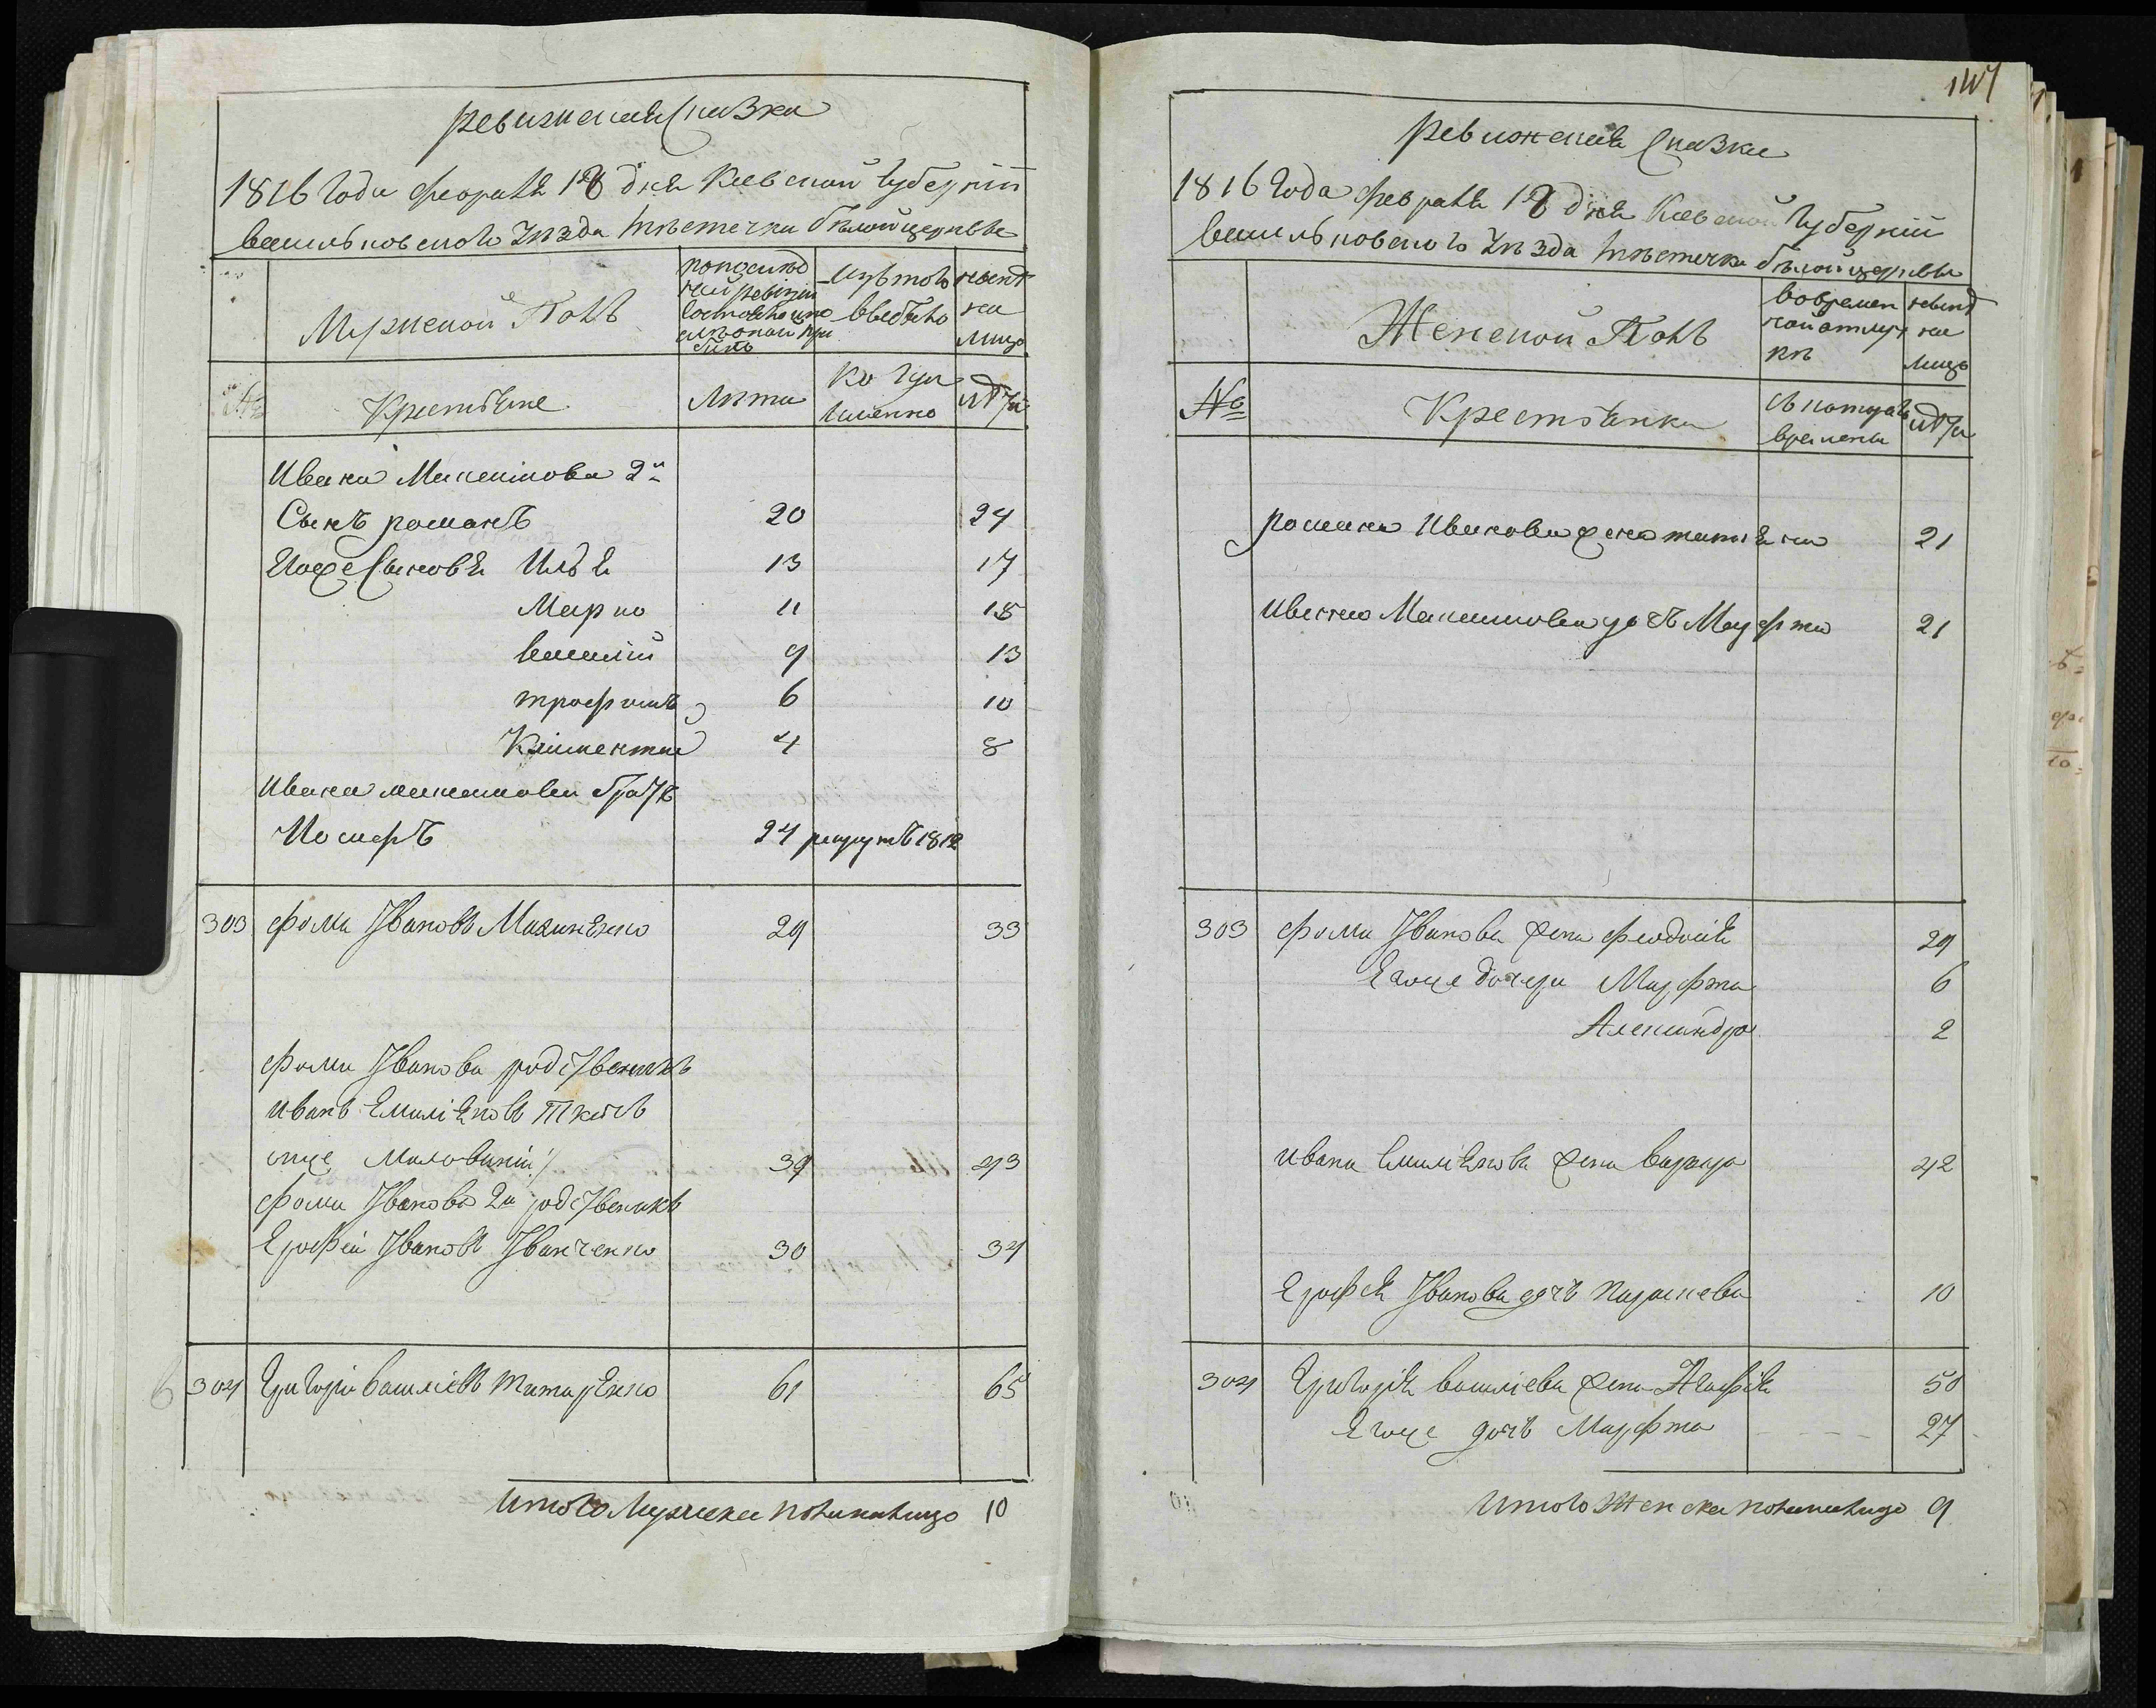 Ревизская Сказка
1816 Года февраля 18 дня Киевской Губернии
васильковского Уезда Местечка белой церквы
Мужеской Полъ
по последней ревизіи состояло и после оной прибыло
Изъ того выбыло
ныне на лицо
№
Крестьяне
Лета
Когда именно
лета
Ивана Максимова 2й
Сынъ романъ 20 24
Его же Сыновья Илья 13 17
Марко 11 15
василій 9 13
трофимъ 6 10
Климентий 4 8
Ивана максимова братъ
Иосифъ 24 рекрутъ 1812
303 фома Ивановъ 29 33
фомы Иванова родственикъ
иванъ Емиліяновъ Ткачъ
39 43
фомы Иванова 2й родственикъ
Ерофей Ивановъ Иванченко 30 34
304 Григорій василіевъ титаренко 61 65
Итого Мужеска пола на лицо 10
147
Ревизская Сказка
1816 Года февраля 18 дня Киевской Губерніи
васильковского Уезда Местечка белой церквы
Женской Полъ
во временной отлучке
ныне на лицо
№
Крестьянки
съ котораго времены
лета
романа Иванова жена татияна 21
Ивана Максимова дочь Марфта 21
303 Фомы Иванова жена феодосія 29
Его же дочери Марфта 6
Александра 2
ивана Емиліянова жена варвара 42
Ерофея Иванова дочь параскева 10
304 Григорія василіева жена Агафія 50
Его же дочь Марфта 27
Итого Женска пола на лицо 9